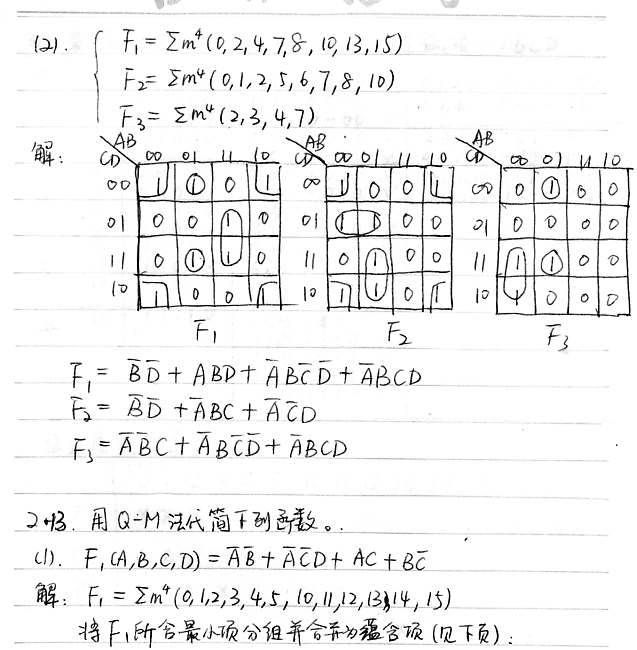 (2). { F₁ = Σm⁴(0,2,4,7,8,10,13,15)
F₂ = Σm⁴(0,1,2,5,6,7,8,10)
F₃ = Σm⁴(2,3,4,7)
解:
AB CD 00 01 11 10
00 1 1 0 1
01 0 0 1 0
11 0 1 1 0
10 1 0 0 1
F₁
AB CD 00 01 11 10
00 1 0 0 1
01 1 1 0 0
11 0 1 0 0
10 1 1 0 1
F₂
AB CD 00 01 11 10
00 0 1 0 0
01 0 0 0 0
11 1 1 0 0
10 1 0 0 0
F₃
F₁ = B̅D̅ + ABD + A̅BC̅D̅ + A̅BCD
F₂ = B̅D̅ + A̅BC + A̅C̅D
F₃ = A̅B̅C + A̅BC̅D̅ + A̅BCD
2.13. 用Q-M法代简下列函数。
(1). F₁(A,B,C,D) = A̅B̅ + A̅C̅D + AC + BC̅
解: F₁ = Σm⁴(0,1,2,3,4,5,10,11,12,13,14,15)
将F₁所含最小项分组并合并为蕴含项(见下页):